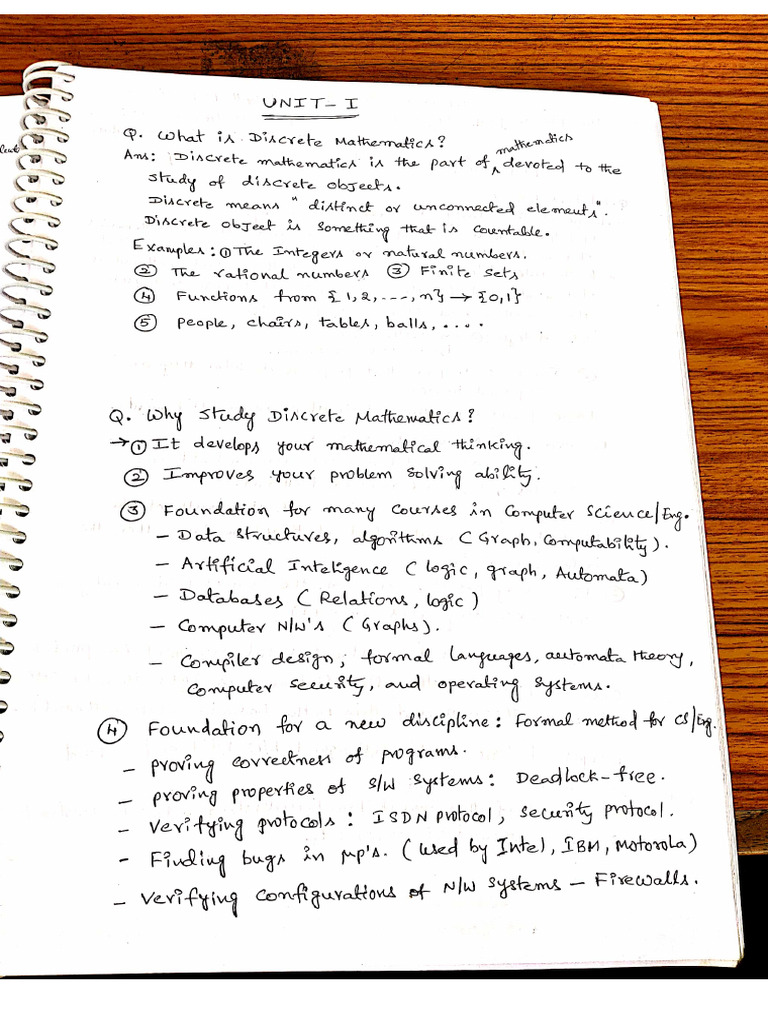 UNIT-I
Q. What is Discrete Mathematics?
mathematics
Ans: Discrete mathematics is the part of ^ devoted to the
study of discrete objects.
Discrete means "distinct or unconnected elements".
Discrete object is something that is countable.
Examples: ① The Integers or natural numbers.
② The rational numbers ③ Finite sets
④ Functions from {1,2,...,n} → {0,1}
⑤ people, chairs, tables, balls, ....
Q. Why study Discrete Mathematics?
→ ① It develops your mathematical thinking.
② Improves your problem solving ability.
③ Foundation for many courses in Computer Science/Eng.
- Data structures, algorithms (Graph, Computability).
- Artificial Inteligence (logic, graph, Automata)
- Databases (Relations, logic)
- Computer N/W's (Graphs).
- Compiler design, formal languages, automata theory,
Computer security, and operating systems.
④ Foundation for a new discipline: Formal method for CS/Eng.
- proving correctness of programs.
- proving properties of S/W systems: Deadlock-free.
- Verifying protocols: ISDN protocol, security protocol.
- Finding bugs in μp's. (used by Intel, IBM, Motorola)
- Verifying configurations of N/W systems - Firewalls.